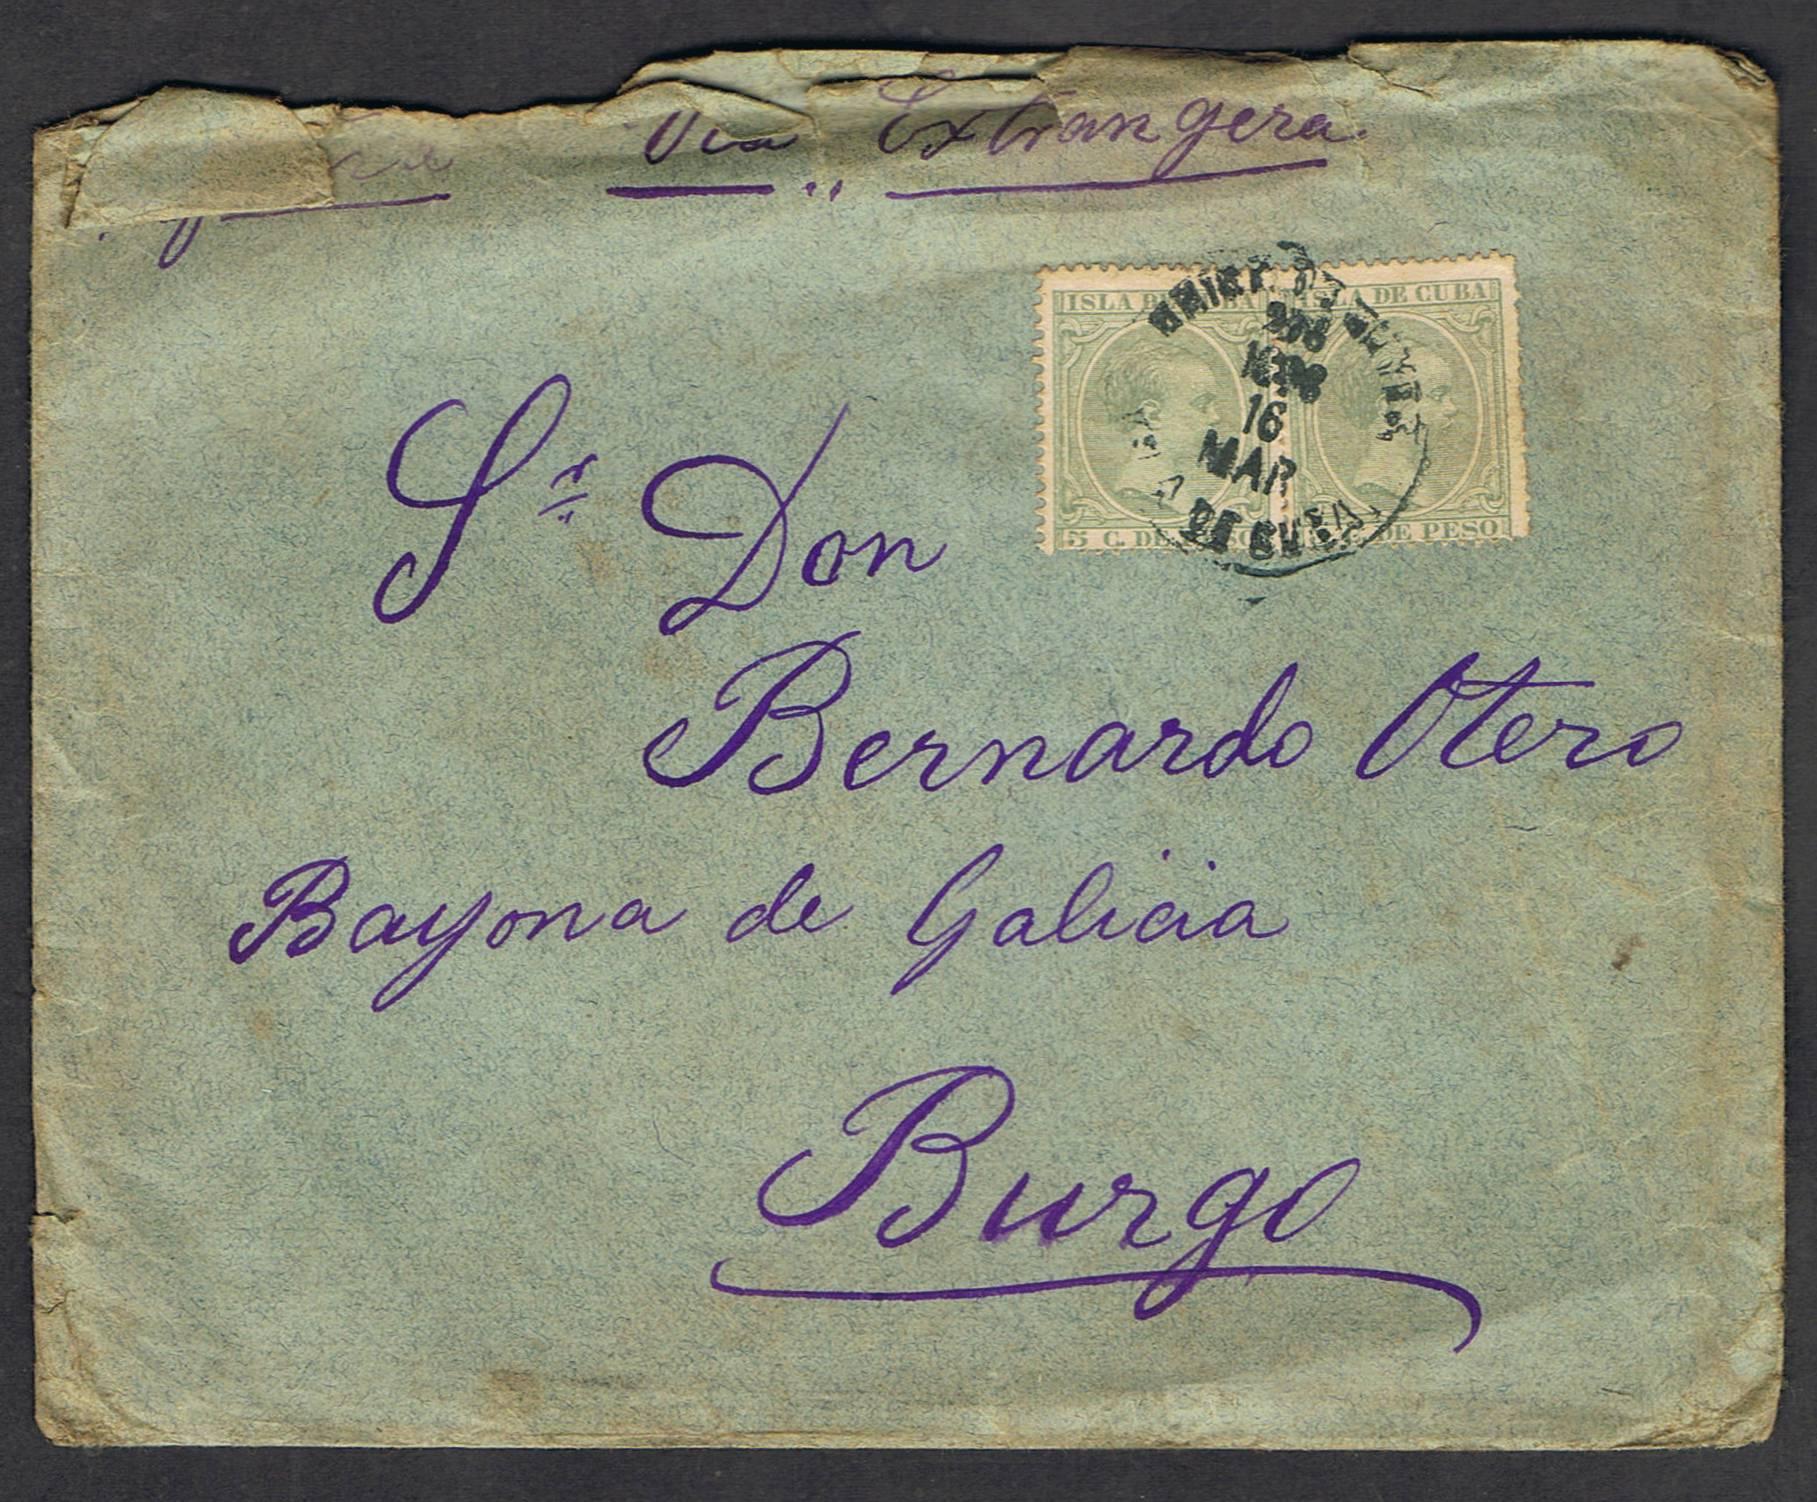 Via Extrangera
ISLA DE CUBA
16
MAR
DE CUBA.
5 C. DE
DE PESO
Sr Don
Bernardo Otero
Bayona de Galicia
Burgo